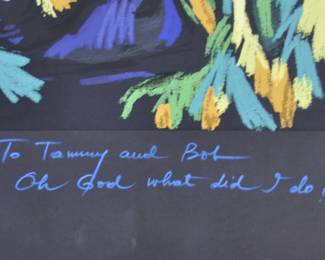 To Tammy and Bob
Oh God what did I do!